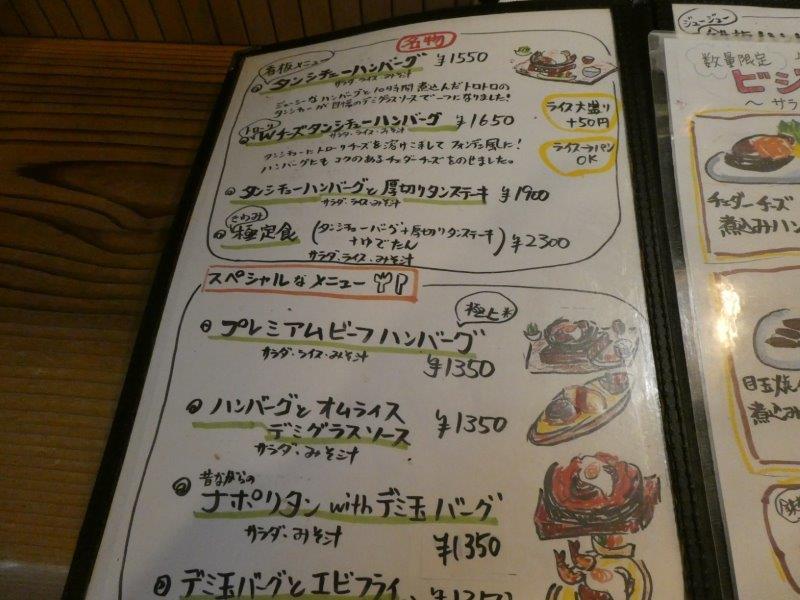 名物
看板メニュー
タンシチューハンバーグ ¥1550
サラダ・ライス・みそ汁
ジューシーなハンバーグと10時間煮込んだトロトロの
タンシチューが自慢のデミグラスソースで一つになりました!
ライス大盛り
+50円
ライス→パン
OK
トローリ
Wチーズタンシチューハンバーグ ¥1650
サラダ・ライス・みそ汁
タンシチューにトローリチーズを溶けこまして フォンデュ風に!
ハンバーグにも コクのあるチェダーチーズをのせました。
タンシチューハンバーグと厚切りタンステーキ ¥1900
サラダ・ライス・みそ汁
きわみ
極定食 (タンシチューバーグ+厚切りタンステーキ
+ゆでたん) ¥2300
サラダ・ライス・みそ汁
スペシャルなメニュー
極上
プレミアムビーフハンバーグ
サラダ・ライス・みそ汁
¥1350
ハンバーグとオムライス ¥1350
デミグラスソース
サラダ・みそ汁
昔ながらの
ナポリタン with デミ玉バーグ
サラダ・みそ汁
¥1350
デミ玉バーグとエビフライ
ジュージュー
数量限定
ビシ
～サラ
チェダーチーズ
煮込みハン
目玉焼
煮込み